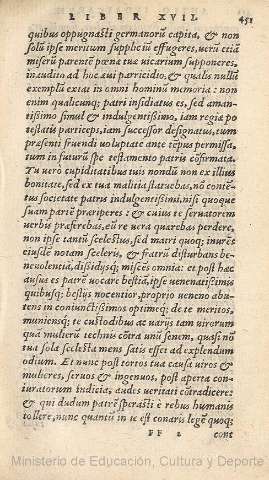 LIBER XVII. 451
quibus oppugnasti germanorũ capita, & non
solũ ipse meritum suppliciũ effugeres, verũ etiã
miserũ parentẽ pœnæ tuæ vicarium supponeres,
inaudito ad hoc æui parricidio, & qualis nullũ
exemplũ extat in omni hominũ memoria: non
enim qualicunq; patri insidiatus es, sed aman-
tissimo simul & indulgentissimo, iam regiæ po
testatis particeps, iam successor designatus, tum
præsenti fruendi voluptate ante tẽpus permissa,
tum in futurũ spe testamento patris cõfirmata.
Tu vero cupiditatibus tuis nondũ non ex illius
bonitate, sed ex tua malitia statuebas, nõ contẽ-
tus societate patris indulgentissimi, nisi quoque
suam partẽ præriperes: & cuius te seruatorem
verbis præferebas, eũ re vera quærebas perdere,
non ipse tantũ scelestus, sed matri quoq; inurẽs
eiusdẽ notam sceleris, & fratrũ disturbans be-
neuolentiã, dissidijsq; miscẽs omnia: et post hæc
ausus es patrẽ vocare bestiã, ipse venenatissimis
quibusq; bestijs nocentior, proprio veneno abu-
tens in coniunctissimos optimeq; de te meritos,
muniensq; te custodibus ac varijs tam virorum
quã mulierũ technis cõtra unũ senem, quasi nõ
tua sola scelesta mens satis esset ad explendum
odium. Et nunc post tortos tua causa viros &
mulieres, seruos & ingenuos, post aperta con-
iuratorum indicia, audes veritati cõtradicere:
& qui dudum patrẽ sperasti è rebus humanis
tollere, nunc quantũ in te est conaris legẽ quoq;
FF 2 cont
Ministerio de Educación, Cultura y Deporte